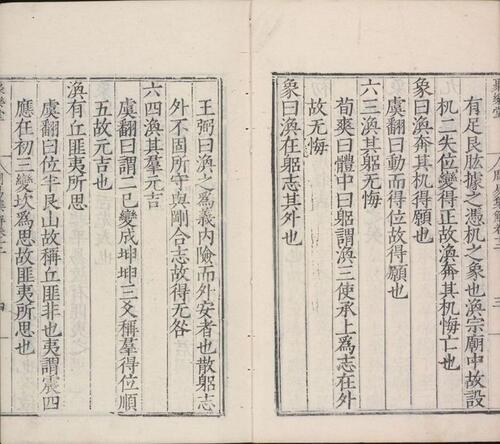 有足艮肱據之憑机之象也渙宗廟中故設
机二失位變得正故渙奔其机悔亡也
象曰渙奔其机得願也
虞翻曰動而得位故得願也
六三渙其躬无悔
荀爽曰體中曰躬謂渙三使承上爲志在外
故无悔
象曰渙在躬志其外也
王弼曰渙之爲義內險而外安者也散躬志
外不固所守與剛合志故得无咎
六四渙其羣元吉
虞翻曰謂二已變成坤坤三爻稱羣得位順
五故元吉也
渙有丘匪夷所思
虞翻曰位半艮山故稱丘匪非也夷謂震四
應在初三變坎爲思故匪夷所思也